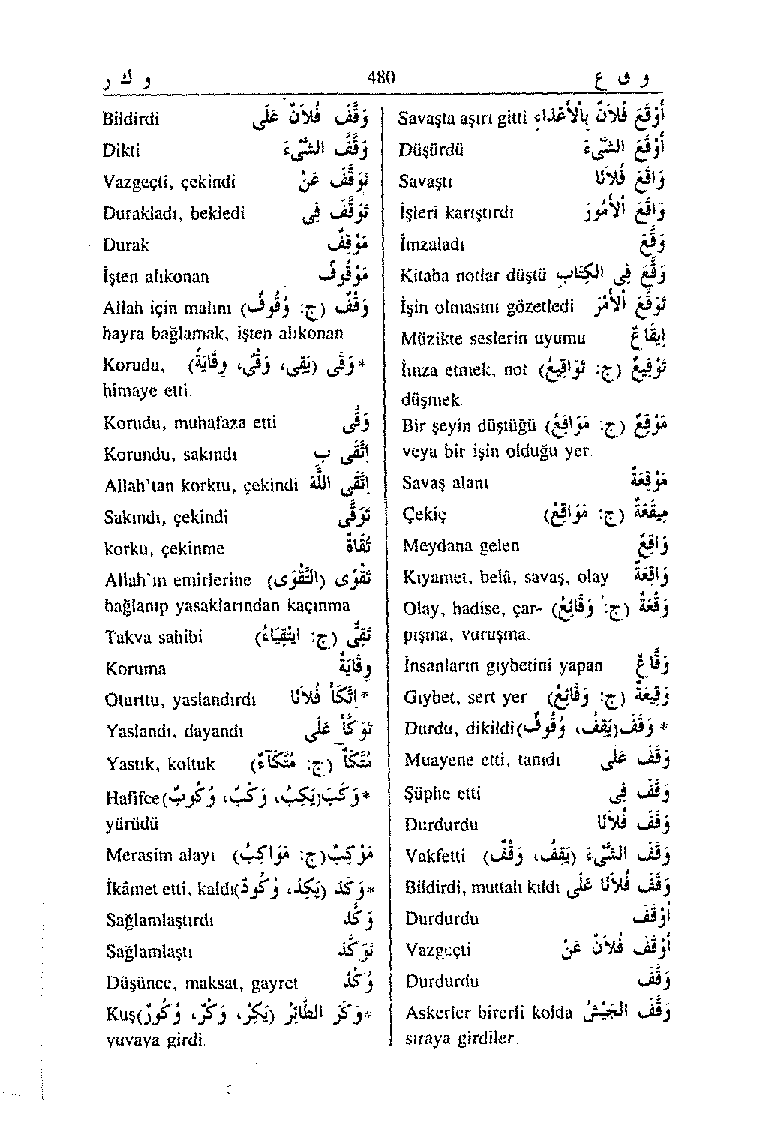 و ق ع 480 و ك ر
Savaşta aşırı gitti أَوْقَعَ فُلاَنٌ بِالأَعْدَاءِ
Düşürdü أَوْقَعَ الشَّيْءَ
Savaştı وَاقَعَ فُلاَنًا
İşleri karıştırdı وَاقَعَ الأُمُورَ
İmzaladı وَقَّعَ
Kitaba notlar düştü وَقَّعَ فِى الكِتَابِ
İşin olmasını gözetledi تَوَقَّعَ الأَمْرَ
Müzikte seslerin uyumu إِيقَاعٌ
İmza etmek, not تَوْقِيعٌ (ج: تَوَاقِيعُ)
düşmek
Bir şeyin düştüğü مَوْقِعٌ (ج: مَوَاقِعُ)
veya bir işin olduğu yer.
Savaş alanı مَوْقَعَةٌ
Çekiç مِيقَعَةٌ (ج: مَوَاقِعُ)
Meydana gelen وَاقِعٌ
Kıyamet, belâ, savaş, olay وَاقِعَةٌ
Olay, hadise, çar- وَقْعَةٌ (ج: وَقَائِعُ)
pışma, vuruşma.
İnsanların gıybetini yapan وَقَّاعٌ
Gıybet, sert yer وَقِيعَةٌ (ج: وَقَائِعُ)
Durdu, dikildi * وَقَفَ (يَقِفُ، وُقُوفٌ)
Muayene etti, tanıdı وَقَفَ عَلَى
Şüphe etti وَقَفَ فِى
Durdurdu وَقَفَ فُلاَنًا
Vakfetti وَقَفَ الشَّيْءَ (يَقِفُ، وَقْفٌ)
Bildirdi, muttali kıldı وَقَفَ فُلاَنًا عَلَى
Durdurdu أَوْقَفَ
Vazgeçti أَوْقَفَ فُلاَنٌ عَنْ
Durdurdu وَقَّفَ
Askerler birerli kolda وَقَّفَ الجَيْشُ
sıraya girdiler.
Bildirdi وَقَّفَ فُلاَنٌ عَلَى
Dikti وَقَّفَ الشَّيْءَ
Vazgeçti, çekindi تَوَقَّفَ عَنْ
Durakladı, bekledi تَوَقَّفَ فِى
Durak مَوْقِفٌ
İşten alıkonan مَوْقُوفٌ
Allah için malını وَقْفٌ (ج: وُقُوفٌ)
hayra bağlamak, işten alıkonan
Korudu, * وَقَى (يَقِى، وَقْىٌ، وِقَايَةٌ)
himaye etti.
Korudu, muhafaza etti وَقَّى
Korundu, sakındı اِتَّقَى بِ
Allah'tan korktu, çekindi اِتَّقَى اللَّهَ
Sakındı, çekindi تَوَقَّى
korku, çekinme تُقَاةٌ
Allah'ın emirlerine تَقْوًى (التَّقْوَى)
bağlanıp yasaklarından kaçınma
Takva sahibi تَقِىٌّ (ج: اتْقِيَاءُ)
Koruma وِقَايَةٌ
Oturttu, yaslandırdı * اتَّكَأَ فُلاَنًا
Yaslandı, dayandı تَوَكَّأَ عَلَى
Yastık, koltuk مُتَّكَأٌ (ج: مُتَّكَآءٌ)
Hafifçe * وَكَبَ (يَكِبُ، وَكْبٌ، وُكُوبٌ)
yürüdü
Merasim alayı مَوْكِبٌ (ج: مَوَاكِبُ)
İkâmet etti, kaldı * وَكَدَ (يَكِدُ، وُكُودٌ)
Sağlamlaştırdı وَكَّدَ
Sağlamlaştı تَوَكَّدَ
Düşünce, maksat, gayret وُكْدٌ
Kuş * وَكَرَ الطَّائِرُ (يَكِرُ، وَكْرٌ، وُكُورٌ)
yuvaya girdi.